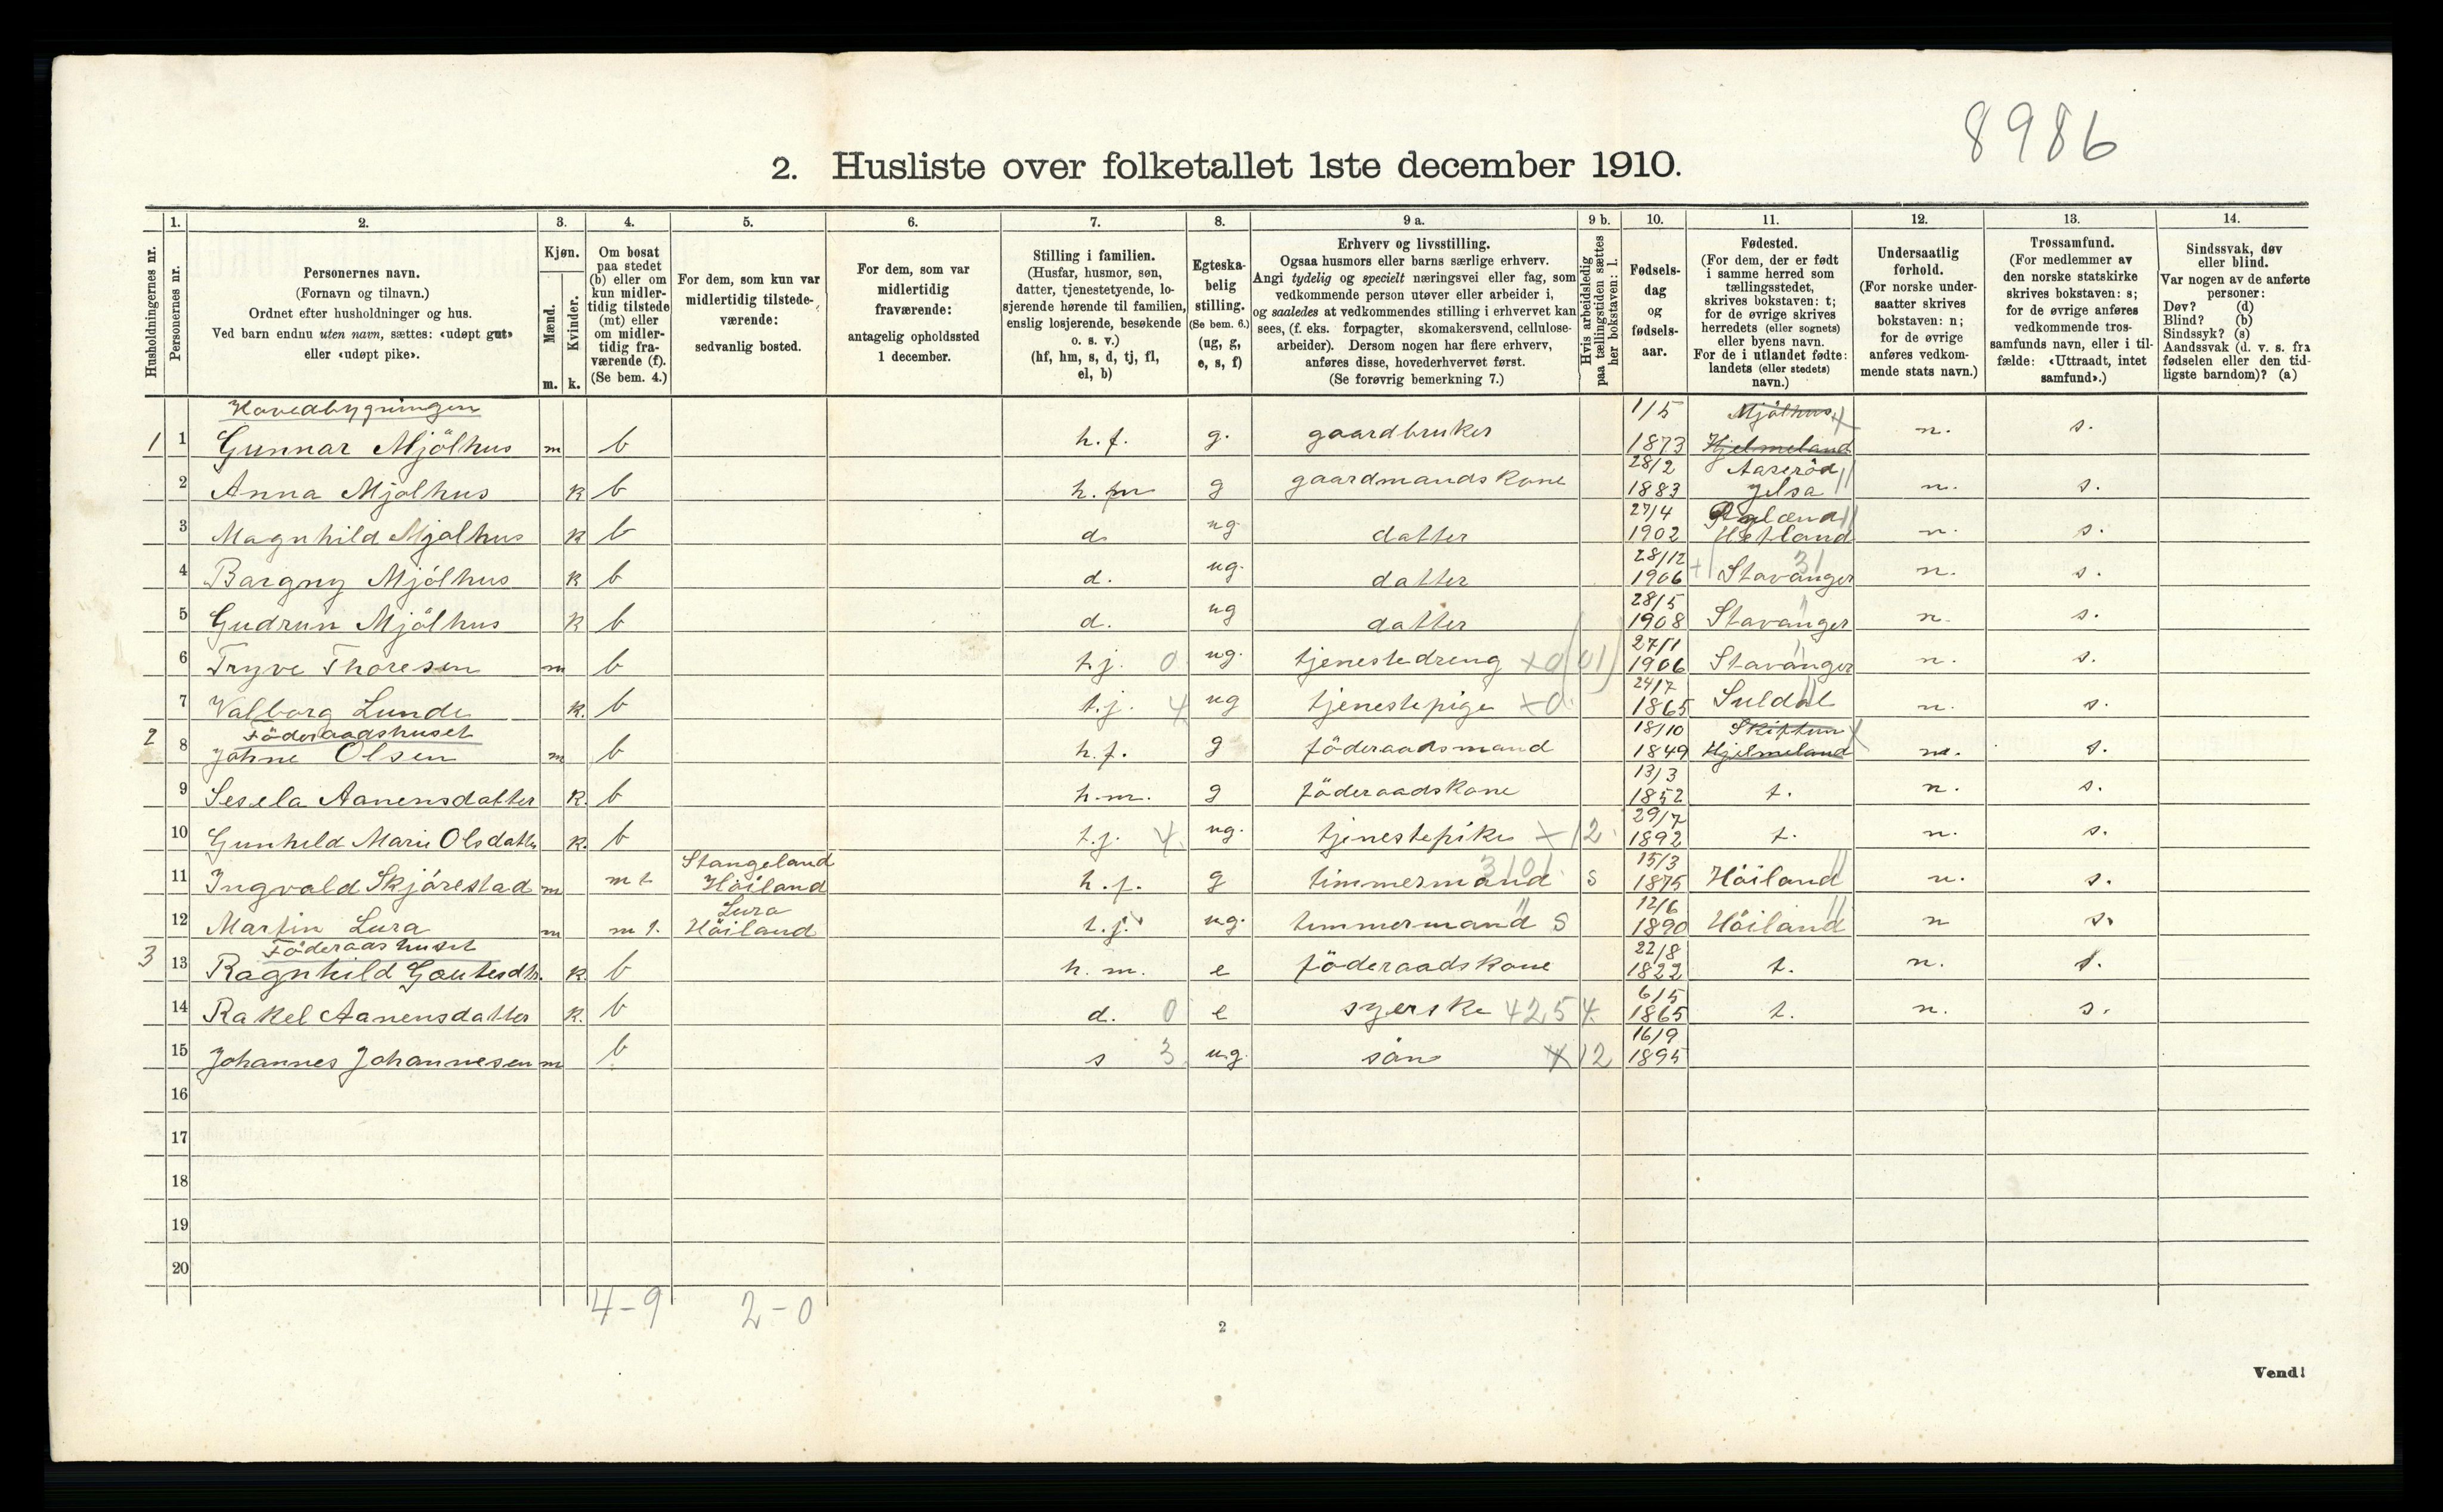 8986
2. Husliste over folketallet 1ste december 1910.
Husholdningernes nr.
1.
Personernes nr.
2.
Personernes navn.
(Fornavn og tilnavn.)
Ordnet efter husholdninger og hus.
Ved barn endnu uten navn, sættes: «udøpt gut»
eller «udøpt pike».
3.
Kjøn.
Mænd.
Kvinder.
m. k.
4.
Om bosat
paa stedet
(b) eller om
kun midler-
tidig tilstede
(mt) eller
om midler-
tidig fra-
værende (f).
(Se bem. 4.)
5.
For dem, som kun var
midlertidig tilstede-
værende:
sedvanlig bosted.
6.
For dem, som var
midlertidig
fraværende:
antagelig opholdssted
1 december.
7.
Stilling i familien.
(Husfar, husmor, søn,
datter, tjenestetyende, lo-
sjerende hørende til familien,
enslig losjerende, besøkende
o. s. v.)
(hf, hm, s, d, tj, fl,
el, b)
8.
Egteska-
belig
stilling.
(Se bem. 6.)
(ug, g,
e, s, f)
9 a.
Erhverv og livsstilling.
Ogsaa husmors eller barns særlige erhverv.
Angi tydelig og specielt næringsvei eller fag, som
vedkommende person utøver eller arbeider i,
og saaledes at vedkommendes stilling i erhvervet kan
sees, (f. eks. forpagter, skomakersvend, cellulose-
arbeider). Dersom nogen har flere erhverv,
anføres disse, hovederhvervet først.
(Se forøvrig bemerkning 7.)
9 b.
Hvis arbeidsledig
paa tællingstiden sættes
her bokstaven: l.
10.
Fødsels-
dag
og
fødsels-
aar.
11.
Fødested.
(For dem, der er født
i samme herred som
tællingsstedet,
skrives bokstaven: t;
for de øvrige skrives
herredets (eller sognets)
eller byens navn.
For de i utlandet fødte:
landets (eller stedets)
navn.)
12.
Undersaatlig
forhold.
(For norske under-
saatter skrives
bokstaven: n;
for de øvrige
anføres vedkom-
mende stats navn.)
13.
Trossamfund.
(For medlemmer av
den norske statskirke
skrives bokstaven: s;
for de øvrige anføres
vedkommende tros-
samfunds navn, eller i til-
fælde: «Uttraadt, intet
samfund».)
14.
Sindssvak, døv
eller blind.
Var nogen av de anførte
personer:
Døv? (d)
Blind? (b)
Sindssyk? (s)
Aandssvak (d. v. s. fra
fødselen eller den tid-
ligste barndom)? (a)
Hovedbygningen
1 1 Gunnar Mjölhus m b h.f. g. gaardbruker 1/5 1873 Mjölhus Hjelmeland n. s.
2 Anna Mjølhus k b h.m g gaardmandskone 28/2 1883 Aaseröd Jelsa n. s.
3 Magnhild Mjølhus k b d ug datter 27/4 1902 Hetland n. s.
4 Bargny Mjölhus k b d. ug. datter 28/12 1906 Stavanger 31 n. s.
5 Gudrun Mjölhus k b d. ug datter 28/5 1908 Stavanger n. s.
6 Tryve Thoresen m b t.j. 0 ug. tjenestedreng x0(01) 27/1 1906 Stavanger n. s.
7 Valborg Lunde k. b t.j. 4 ug tjenestepige x0 24/7 1865 Suldal n. s.
Föderaadshuset
2 8 Johne Olsen m b h.f. g föderaadsmand 18/10 1849 Skiftun Hjelmeland n. s.
9 Sesela Aanensdatter k. b h.m. g föderaadskone 13/3 1852 t. n. s.
10 Gunhild Marie Olsdatter k. b t.j. 4 ug. tjenestepike x 12 29/7 1892 t. n. s.
11 Ingvald Skjørestad m mt Stangeland Höiland h.f. g timmermand 3101 s 15/3 1875 Höiland n. s.
12 Martin Lura m mt. Lura Höiland t.j. ug. timmermand " s 12/6 1890 Höiland n s.
Föderaashuset
3 13 Ragnhild Gautesdtr. k b h.m. e föderaadskone 22/8 1822 t. n. s.
14 Rakel Aanensdatter k. b d. 0 e syerske 4254 6/5 1865 t. n. s.
15 Johannes Johannesen m b s 3 ug. sön x 12 16/9 1895
16
17
18
19
20
4-9 2-0
2
Vend!